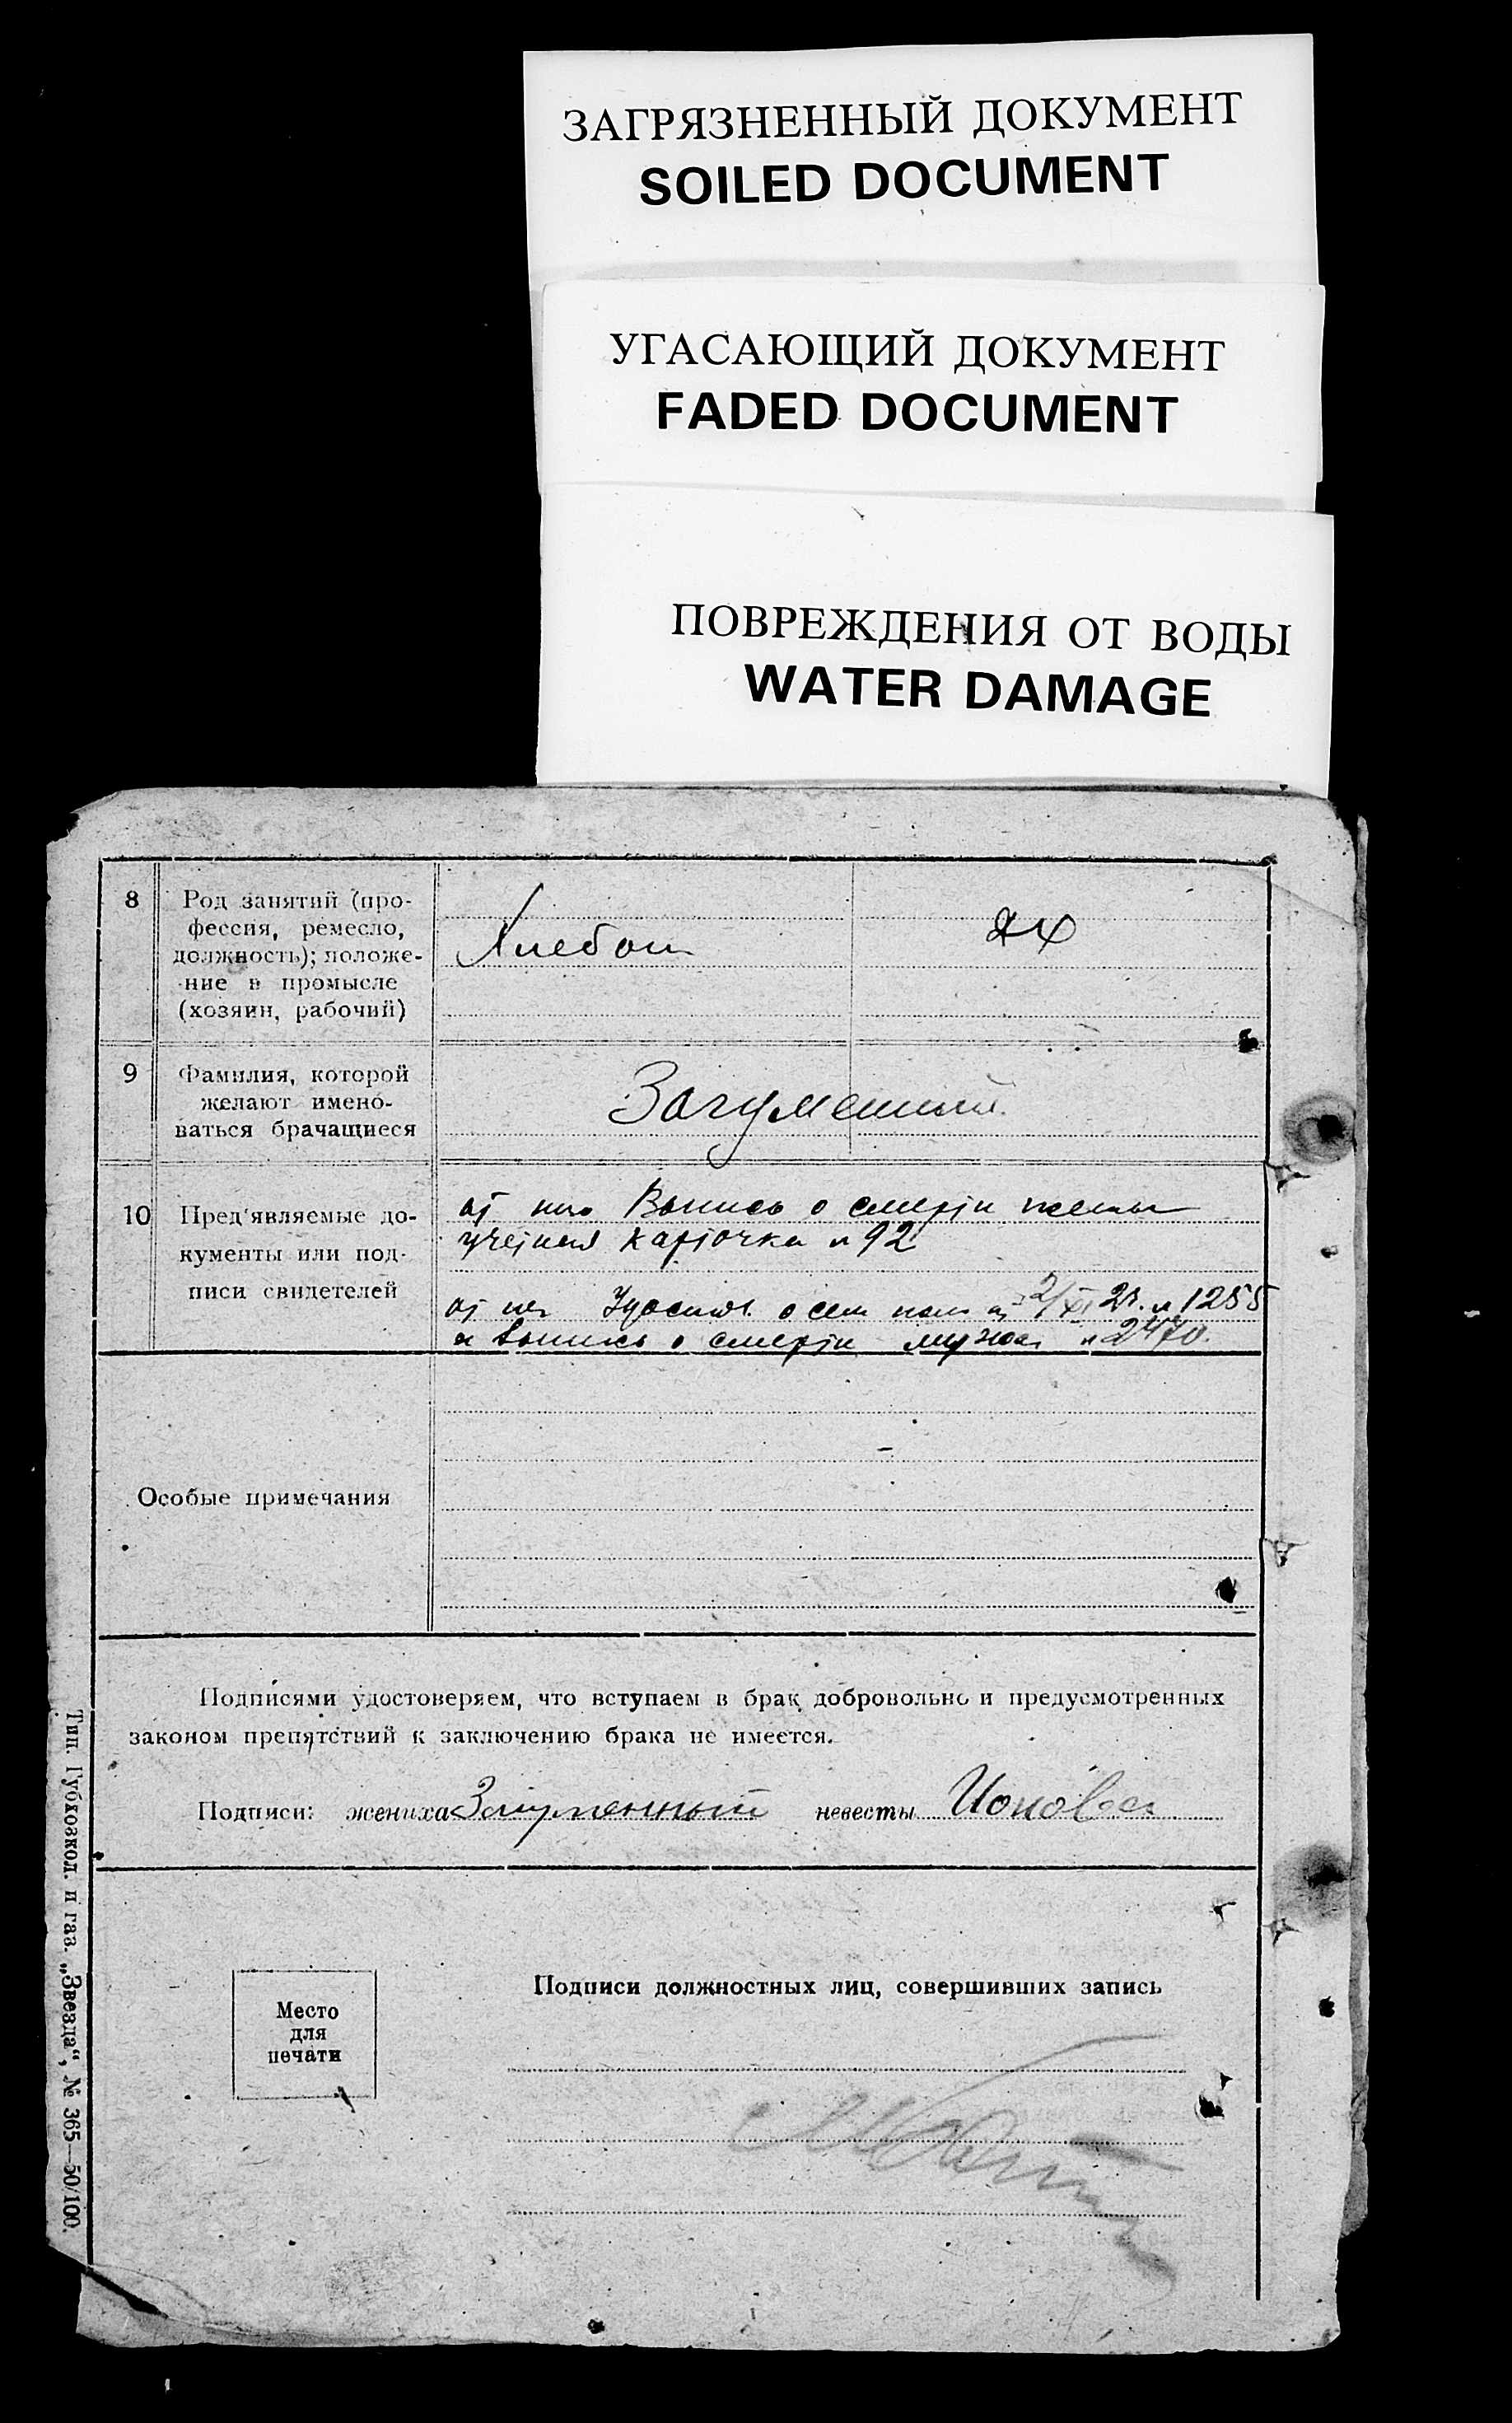 ЗАГРЯЗНЕННЫЙ ДОКУМЕНТ
SOILED DOCUMENT
УГАСАЮЩИЙ ДОКУМЕНТ
FADED DOCUMENT
ПОВРЕЖДЕНИЯ ОТ ВОДЫ
WATER DAMAGE
8
Род занятий (про-
фессия, ремесло,
должность); положе-
ние в промысле
(хозяин, рабочий)
Хлебоп
дх
9
Фамилия, которой
желают имено-
ваться брачащиеся
Загуменный
10
Пред'являемые до-
кументы или под-
писи свидетелей
от него Выпись о смерти жены
учетная карточка № 92
от нее о сем пол 2/XI 25. № 1255
и выпись о смерти мужа № 2470.
Особые примечания
Подписями удостоверяем, что вступаем в брак добровольно и предусмотренных
законом препятствий к заключению брака не имеется.
Подписи: жениха Загуменный невесты Ионова
Подписи должностных лиц, совершивших запись
Место
для
печати
Тип. Губисполк. и газ. „Звезда“, № 365—50/100.